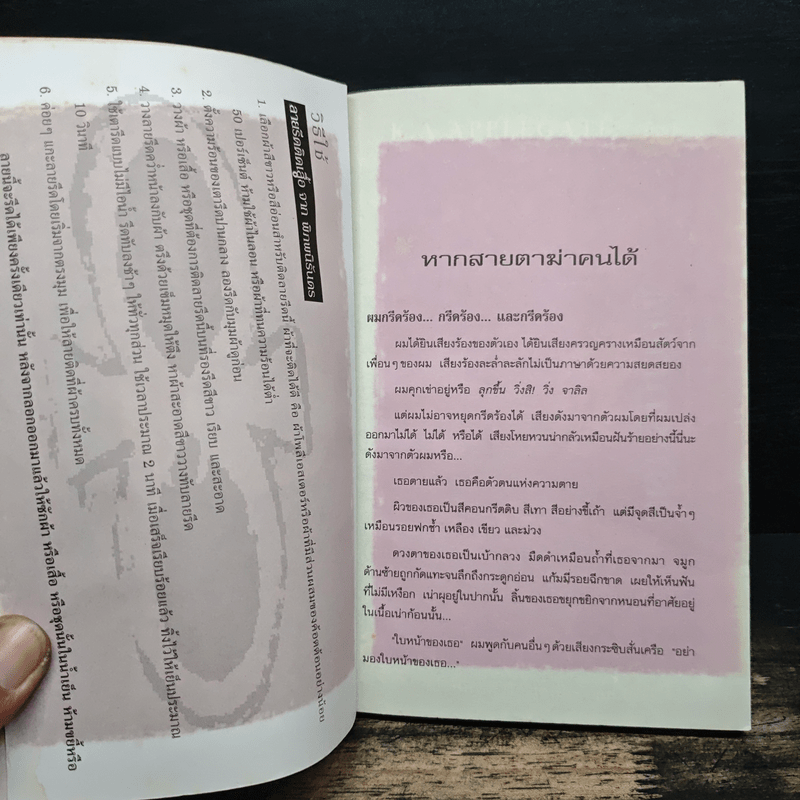 วิธีใช้
ลายรีดติดเสื้อ จาก พิภพนิรันดร
1. เลือกผ้าสีขาวหรือสีอ่อนสำหรับติดลายรีดนี้ ผ้าที่จะติดได้ดี คือ ผ้าโพลีเอสเตอร์หรือผ้าที่มีส่วนผสมของค้อตต้อนอย่างน้อย
50 เปอร์เซ็นต์ ห้ามใช้ผ้าไนลอน หรือผ้าที่ทนความร้อนได้ต่ำ
2. ตั้งความร้อนของเตารีดปานกลาง ลองรีดกับมุมผ้าดูก่อน
3. วางผ้า หรือเสื้อ หรือชุดที่ต้องการติดลายรีดนี้บนที่รองรีดสีขาว เรียบ และสะอาด
4. วางลายรีดคว่ำหน้าลงกับผ้า ตรึงด้วยเข็มหมุดให้ตึง หาผ้าสะอาดสีขาววางทับลายรีด
5. ใช้เตารีดแบบไม่มีไอน้ำ รีดทับลงช้าๆ ให้ทั่วทุกส่วน ใช้เวลาประมาณ 2 นาที เมื่อเสร็จเรียบร้อยแล้ว ทิ้งไว้ให้เย็นประมาณ
10 วินาที
6. ค่อยๆ แกะลายรีดโดยเริ่มจากตรงมุม เพื่อให้ลายติดที่ผ้าครบทั้งหมด
ลายนี้จะรีดได้เพียงครั้งเดียวเท่านั้น หลังจากลอกออกมาแล้วให้ซักผ้า หรือเสื้อ หรือชุดนั้นในน้ำเย็น ห้ามขยี้หรือ
หากสายตาฆ่าคนได้
ผมกรีดร้อง... กรีดร้อง... และกรีดร้อง
ผมได้ยินเสียงร้องของตัวเอง ได้ยินเสียงครวญครางเหมือนสัตว์จาก
เพื่อนๆ ของผม เสียงร้องละล่ำละลักไม่เป็นภาษาด้วยความสยดสยอง
ผมคุกเข่าอยู่หรือ ลุกขึ้น วิ่งสิ! วิ่ง จาลิล
แต่ผมไม่อาจหยุดกรีดร้องได้ เสียงดังมาจากตัวผมโดยที่ผมเปล่ง
ออกมาไม่ได้ ไม่ได้ หรือได้ เสียงโหยหวนน่ากลัวเหมือนฝันร้ายอย่างนี้นี่นะ
ดังมาจากตัวผมหรือ...
เธอตายแล้ว เธอคือตัวตนแห่งความตาย
ผิวของเธอเป็นสีคอนกรีตดิบ สีเทา สีอย่างขี้เถ้า แต่มีจุดสีเป็นจ้ำๆ
เหมือนรอยฟกช้ำ เหลือง เขียว และม่วง
ดวงตาของเธอเป็นเบ้ากลวง มืดดำเหมือนถ้ำที่เธอจากมา จมูก
ด้านซ้ายถูกกัดแทะจนลึกถึงกระดูกอ่อน แก้มมีรอยฉีกขาด เผยให้เห็นฟัน
ที่ไม่มีเหงือก เน่าผุอยู่ในปากนั้น ลิ้นของเธอขยุกขยิกจากหนอนที่อาศัยอยู่
ในเนื้อเน่าก้อนนั้น...
"ใบหน้าของเธอ" ผมพูดกับคนอื่นๆ ด้วยเสียงกระซิบสั่นเครือ "อย่า
มองใบหน้าของเธอ..."